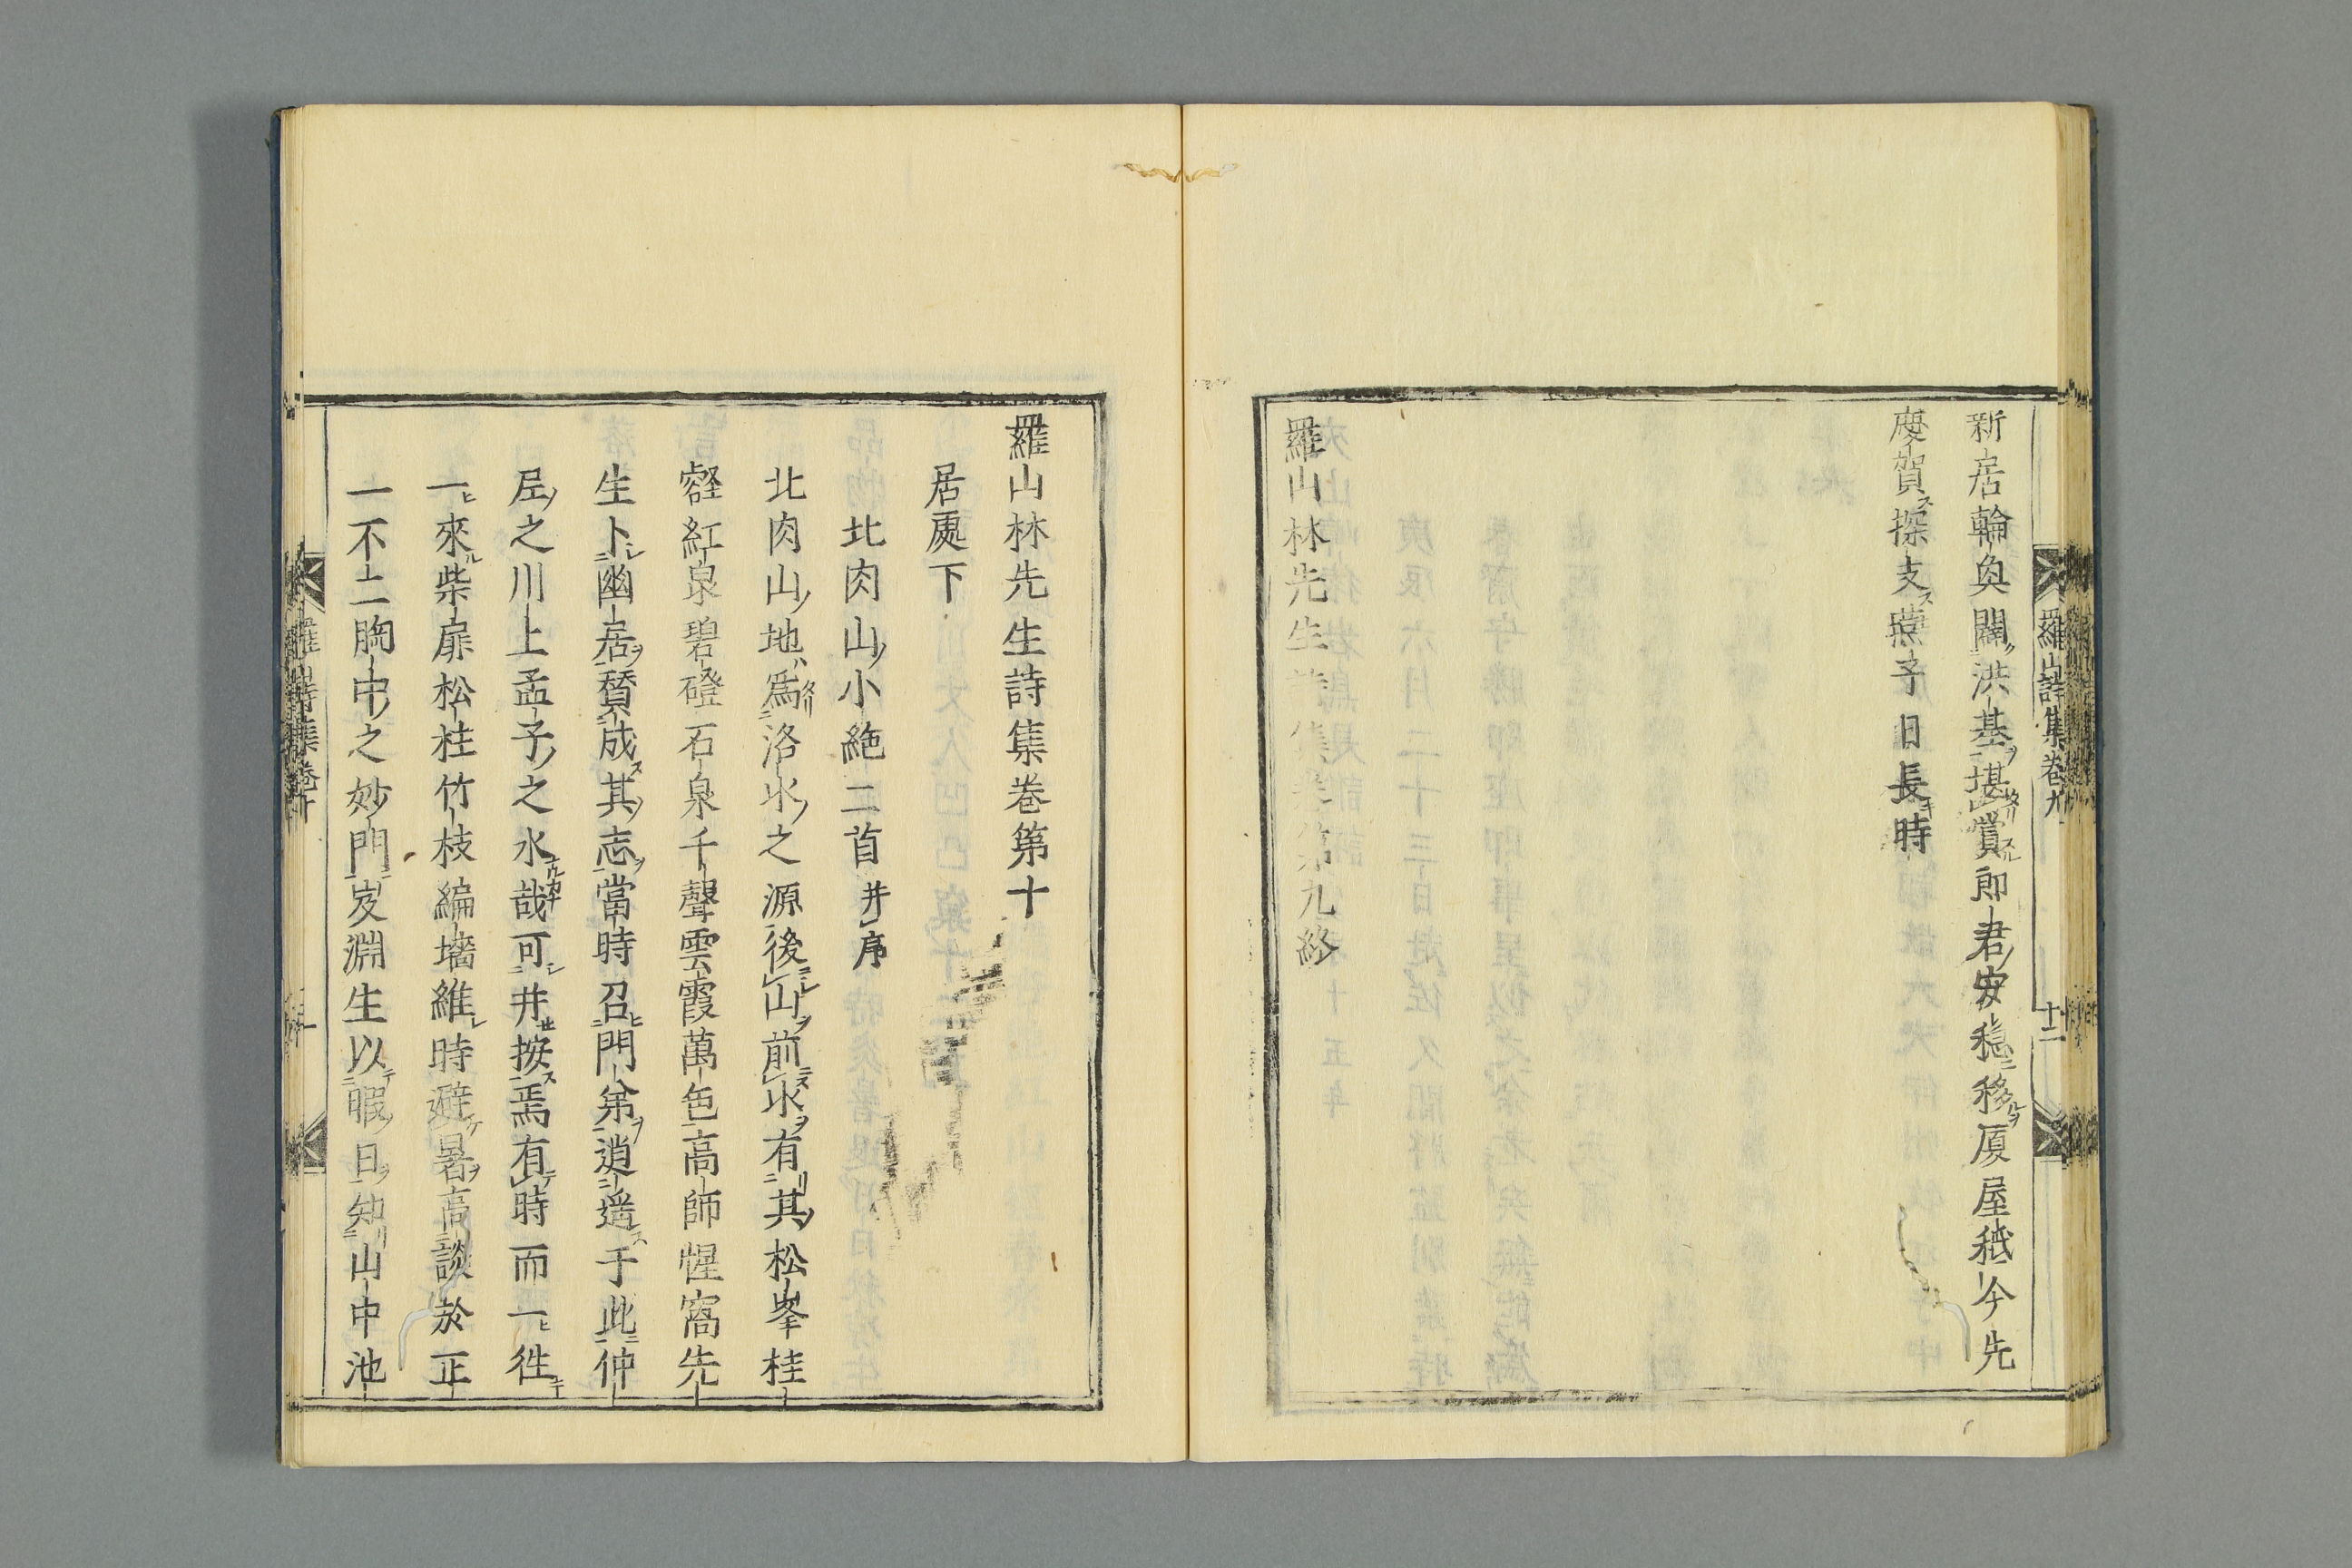 羅山詩集卷九
十二
新居輪奐闢洪基堪賞郎君安穩移厦屋秖今先
慶賀探支燕子日長時
羅山林先生詩集卷第九終
羅山林先生詩集卷第十
居處下
北肉山小絶二首并序
北肉山地爲洛水之源後山前水有其松峯桂
壑紅泉碧磴石泉千聲雲霞萬色高師惺窩先
生卜幽居賛成其志當時召門弟逍遥于此仲
尼之川上孟子之水哉可并按焉有時而一往
一來柴扉松桂竹枝編墻維時避暑高談於正
一不二胸中之妙門岌淵生以暇日知山中池
羅山詩集卷十
一